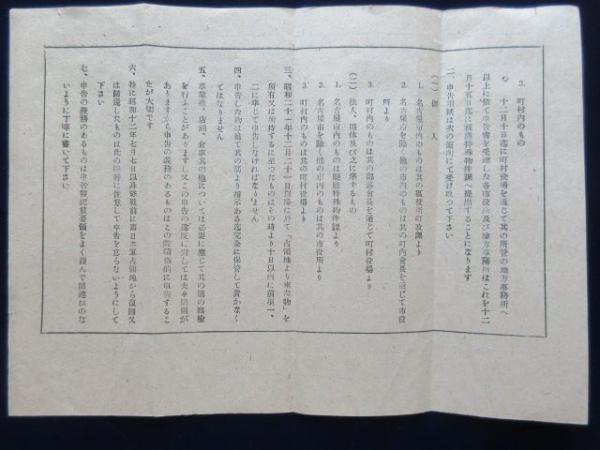 3. 町村内のもの
十二月十日迄に町村役場を通じて其の所管の地方事務所へ
以上に依て申告書を受理した各市役所及び地方事務所はこれを十二
月十五日迄に縣庁特殊物件課へ提出することになります
二、申告用紙は次の個所にて受け取つて下さい
(一) 個人
1. 名古屋市内のものは其の区役所町政課より
2. 名古屋市を除く他の市内のものは其の町内会長を通じて市役
所より
3. 町村内のものは其の部落会長を通じて町村役場より
(二) 法人、団体及び之に準ずるもの
1. 名古屋市内のものは縣庁特殊物件課より
2. 名古屋市を除く他の市内のものは其の市役所より
3. 町村内のものは其の町村役場より
三、昭和二十一年十二月二十一日以降に於て「占領地より來た物」を
所有又は所持するに至つたものはその時より十日以内に前項一、
二に準じて申告しなければなりません
四、申告した物は追て其の筋より指示ある迄完全に保管して置かなく
てはなりません
五、事業場、店頭、倉庫其の他については必要に應じて其の筋の臨檢
を行ふことがありますし又この申告の違反に対しては夫々罰則が
ありますから申告の義務のあるものはこの際積極的に申告するこ
とが大切です
六、特に昭和十二年七月七日以降終戰前に舊日本軍占領地から復員又
は歸還したものは此の際特に注意して申告を忘らないようにして
下さい
七、申告の義務のあるものは申告書記載要領をよく讀んで間違ひのな
いように丁寧に書いて下さい